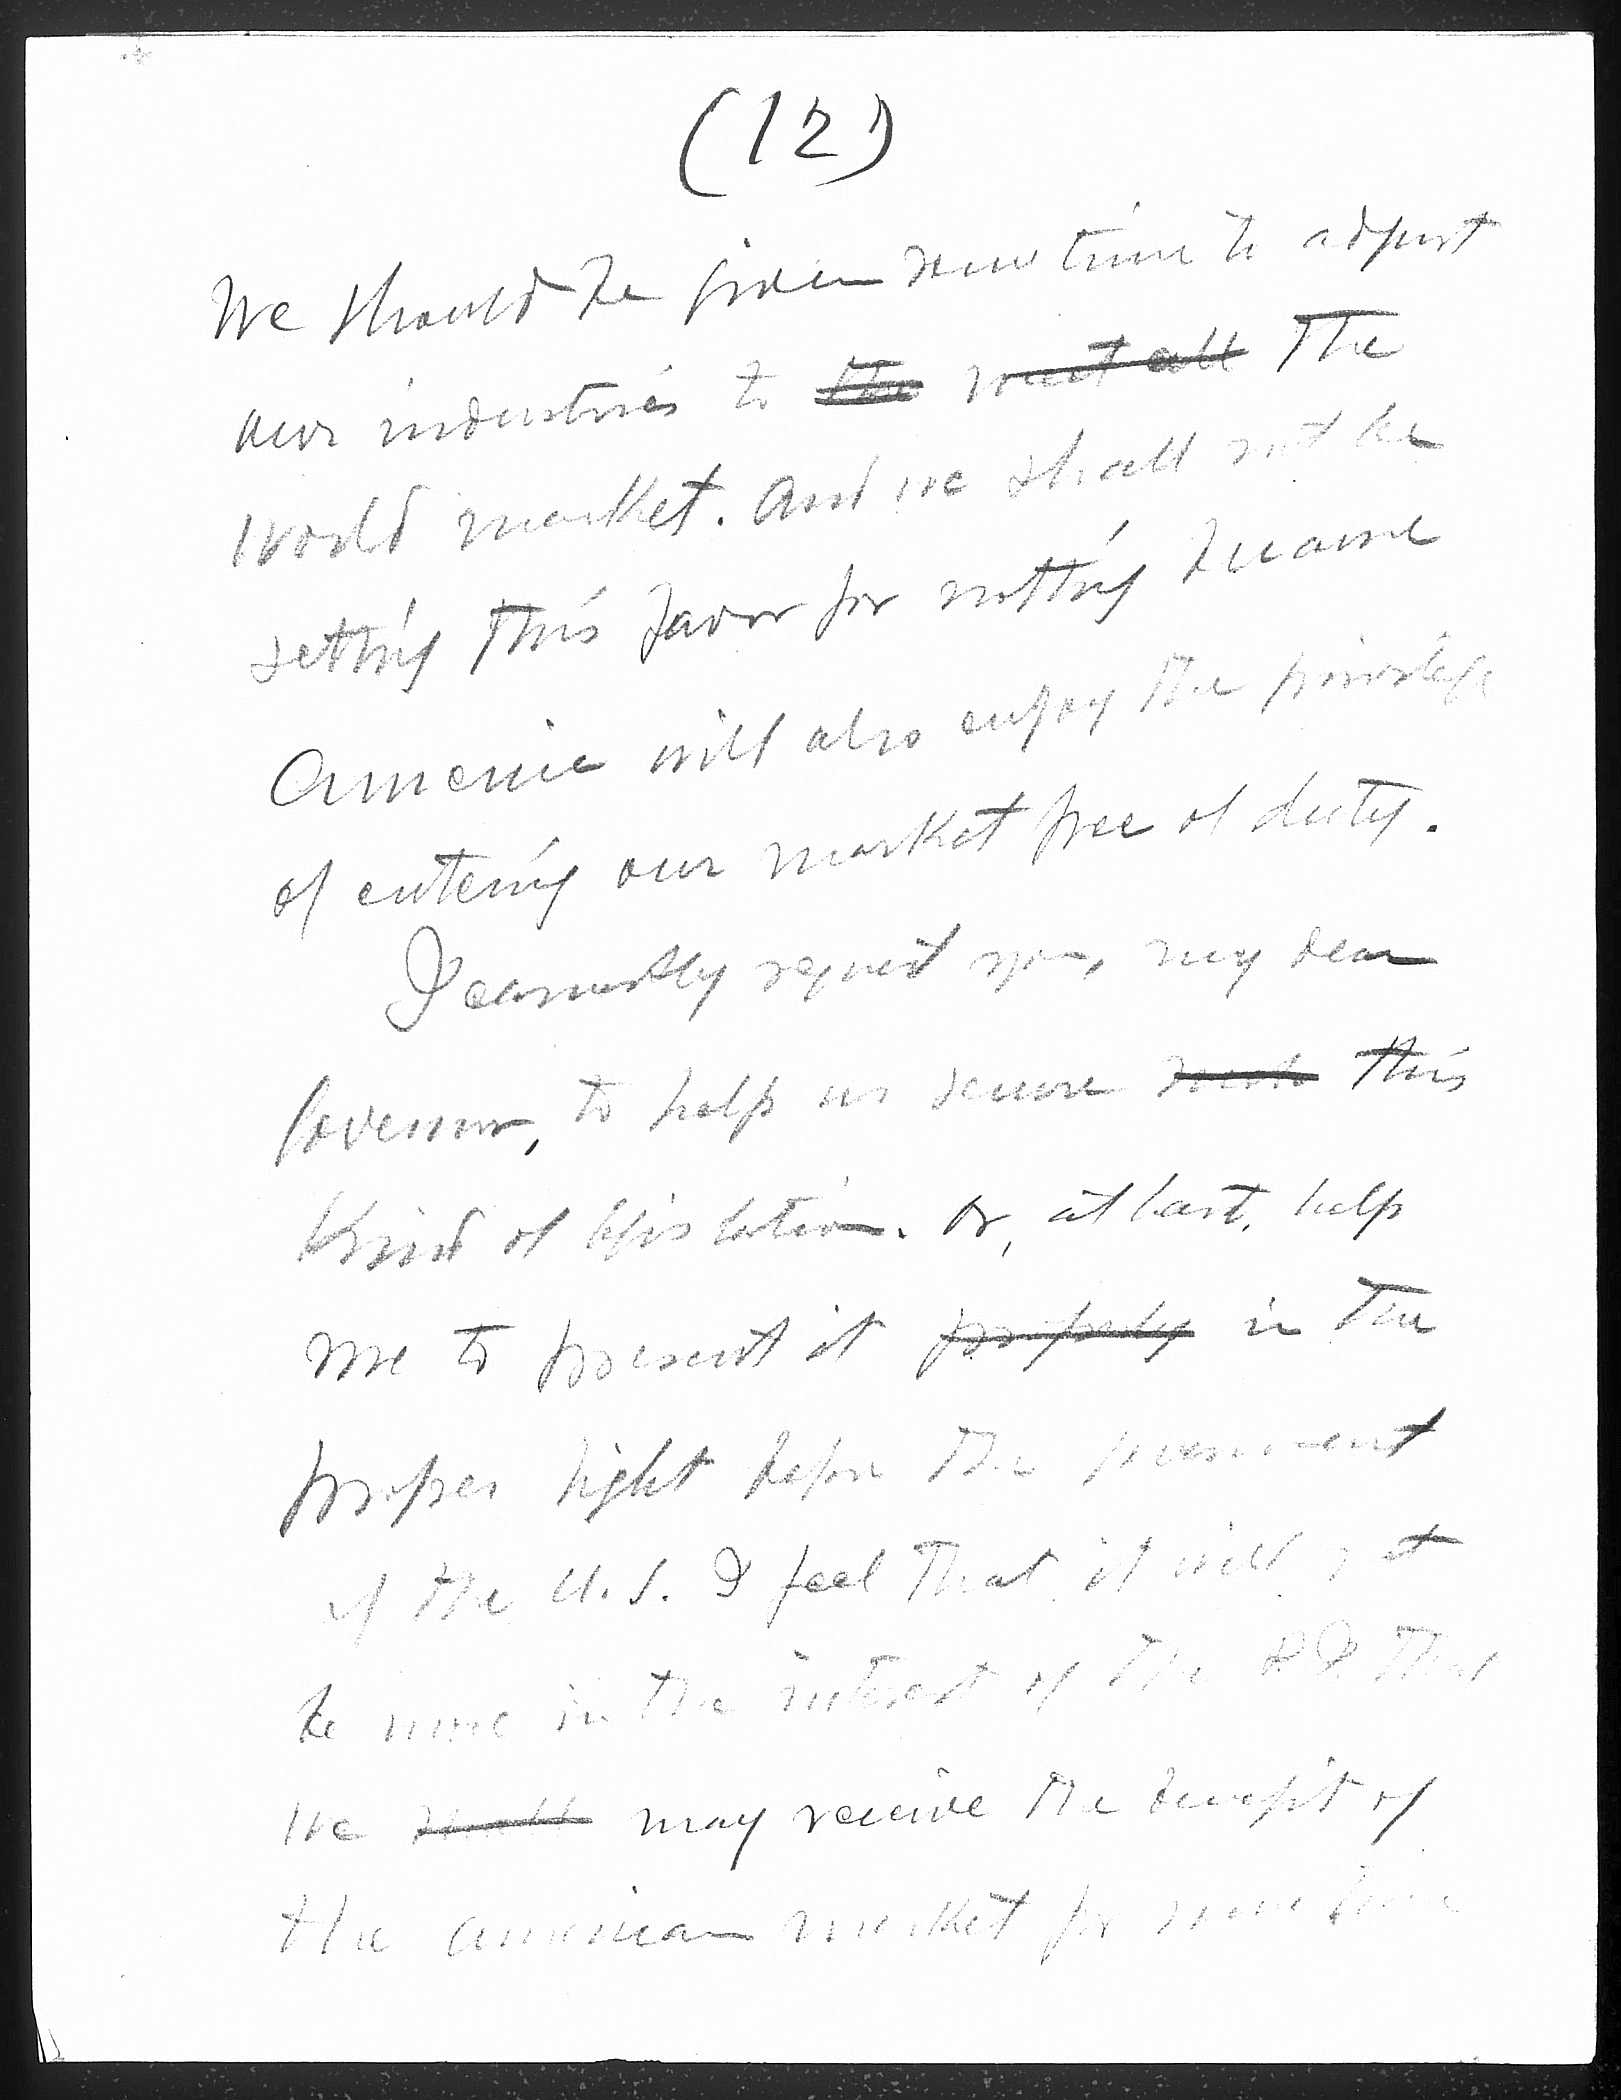 (12)
We should be given some time to adjust
our industries to the meet all the
world market. And we shall not be
getting this favor for nothing because
America will also enjoy the privilege
of entering our market free of duty.
I earnestly request you, my dear
Governor, to help us secure such this
kind of legislation. Or, at least, help
me to present it properly in the
proper light before the government
of the U.S. I feel that it will not
be more in the interest of the P.I. that
we shall may receive the benefit of
the American market for some time